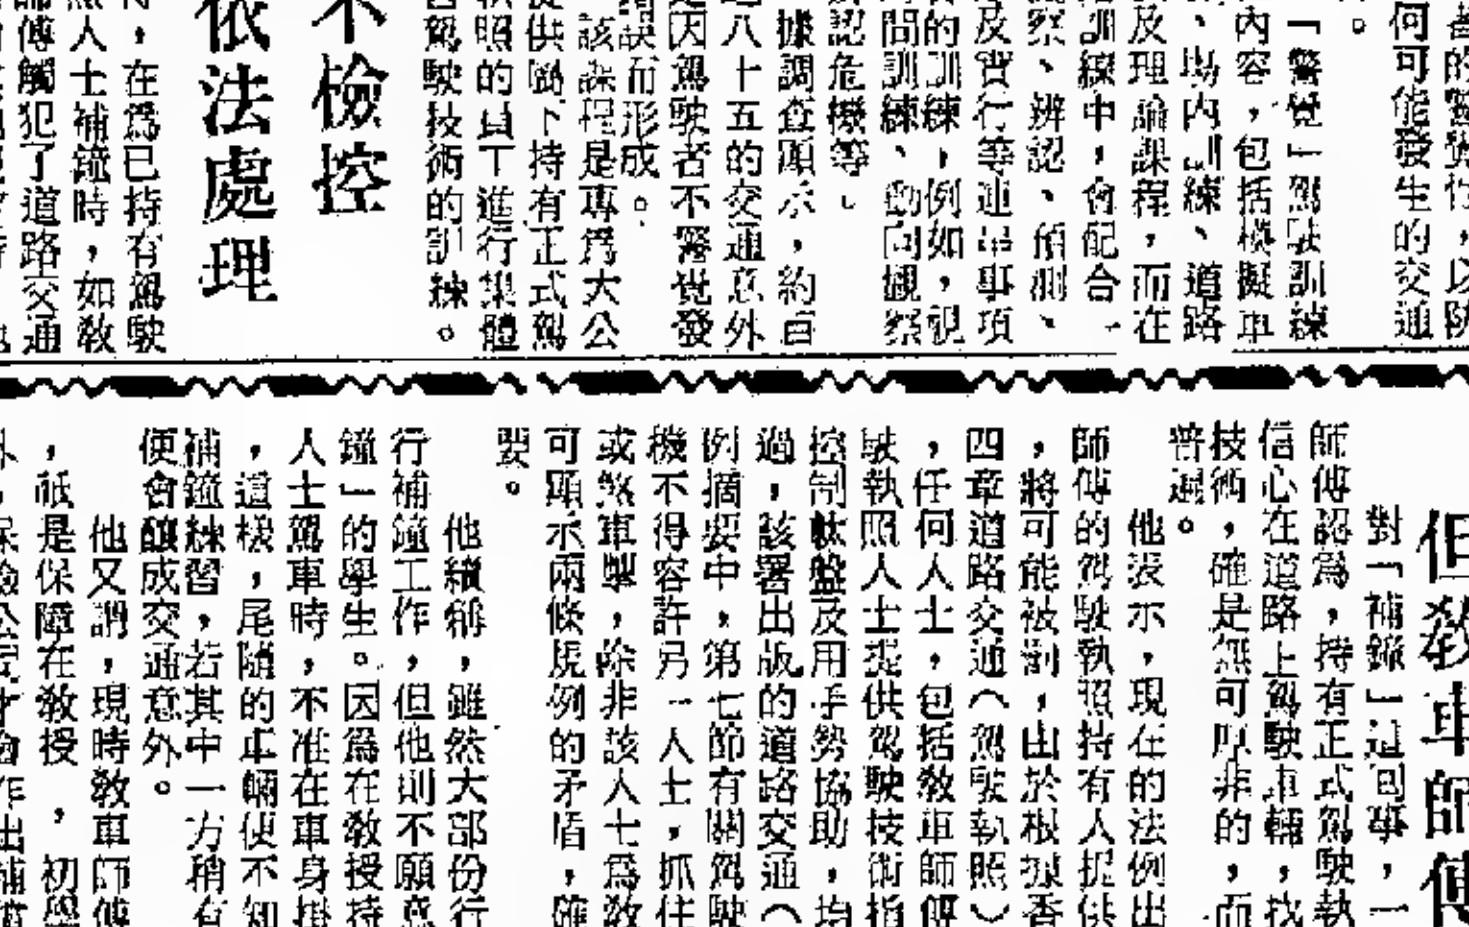 何可能發生的交通
。
「警覺」駕駛訓練
內容，包括模擬車
、場內訓練、道路
及理論課程，而在
訓練中，會配合一
察、辨認、預測、
及實行等連串事項
的訓練，例如，視
問訓練、動向觀察
認危機等。
據調查顯示，約百
八十五的交通意外
因駕駛者不警覺發
誤而形成。
該課程是專為大公
供屬下持有正式駕
照的員工進行集體
駕駛技術的訓練。
不檢控
依法處理
，在為已持有駕駛
人士補鐘時，如教
師傅觸犯了道路交通
但教車師傅
對「補鐘」這回事，一
師傅認為，持有正式駕駛執
信心在道路上駕駛車輛，找
技術，確是無可厚非的，而
普遍。
他表示，現在的法例出
師傅的駕駛執照持有人提供
，將可能被割，由於根據香
四章道路交通（駕駛執照）
，任何人士，包括教車師傅
駛執照人士提供駕駛技術指
控制軚盤及用手勢協助，均
過，該署出版的道路交通（
例摘要中，第七節有關駕駛
機不得容許另一人士，抓住
或煞車掣，除非該人士為教
可顯示兩條規例的矛盾，確
要。
他續稱，雖然大部份行
行補鐘工作，但他則不願意
鐘」的學生。因為在教授持
人士駕車時，不准在車身掛
，這樣，尾隨的車輛便不知
補鐘練習，若其中一方稍有
便會釀成交通意外。
他又謂，現時教車師傅
，祇是保障在教授，初學